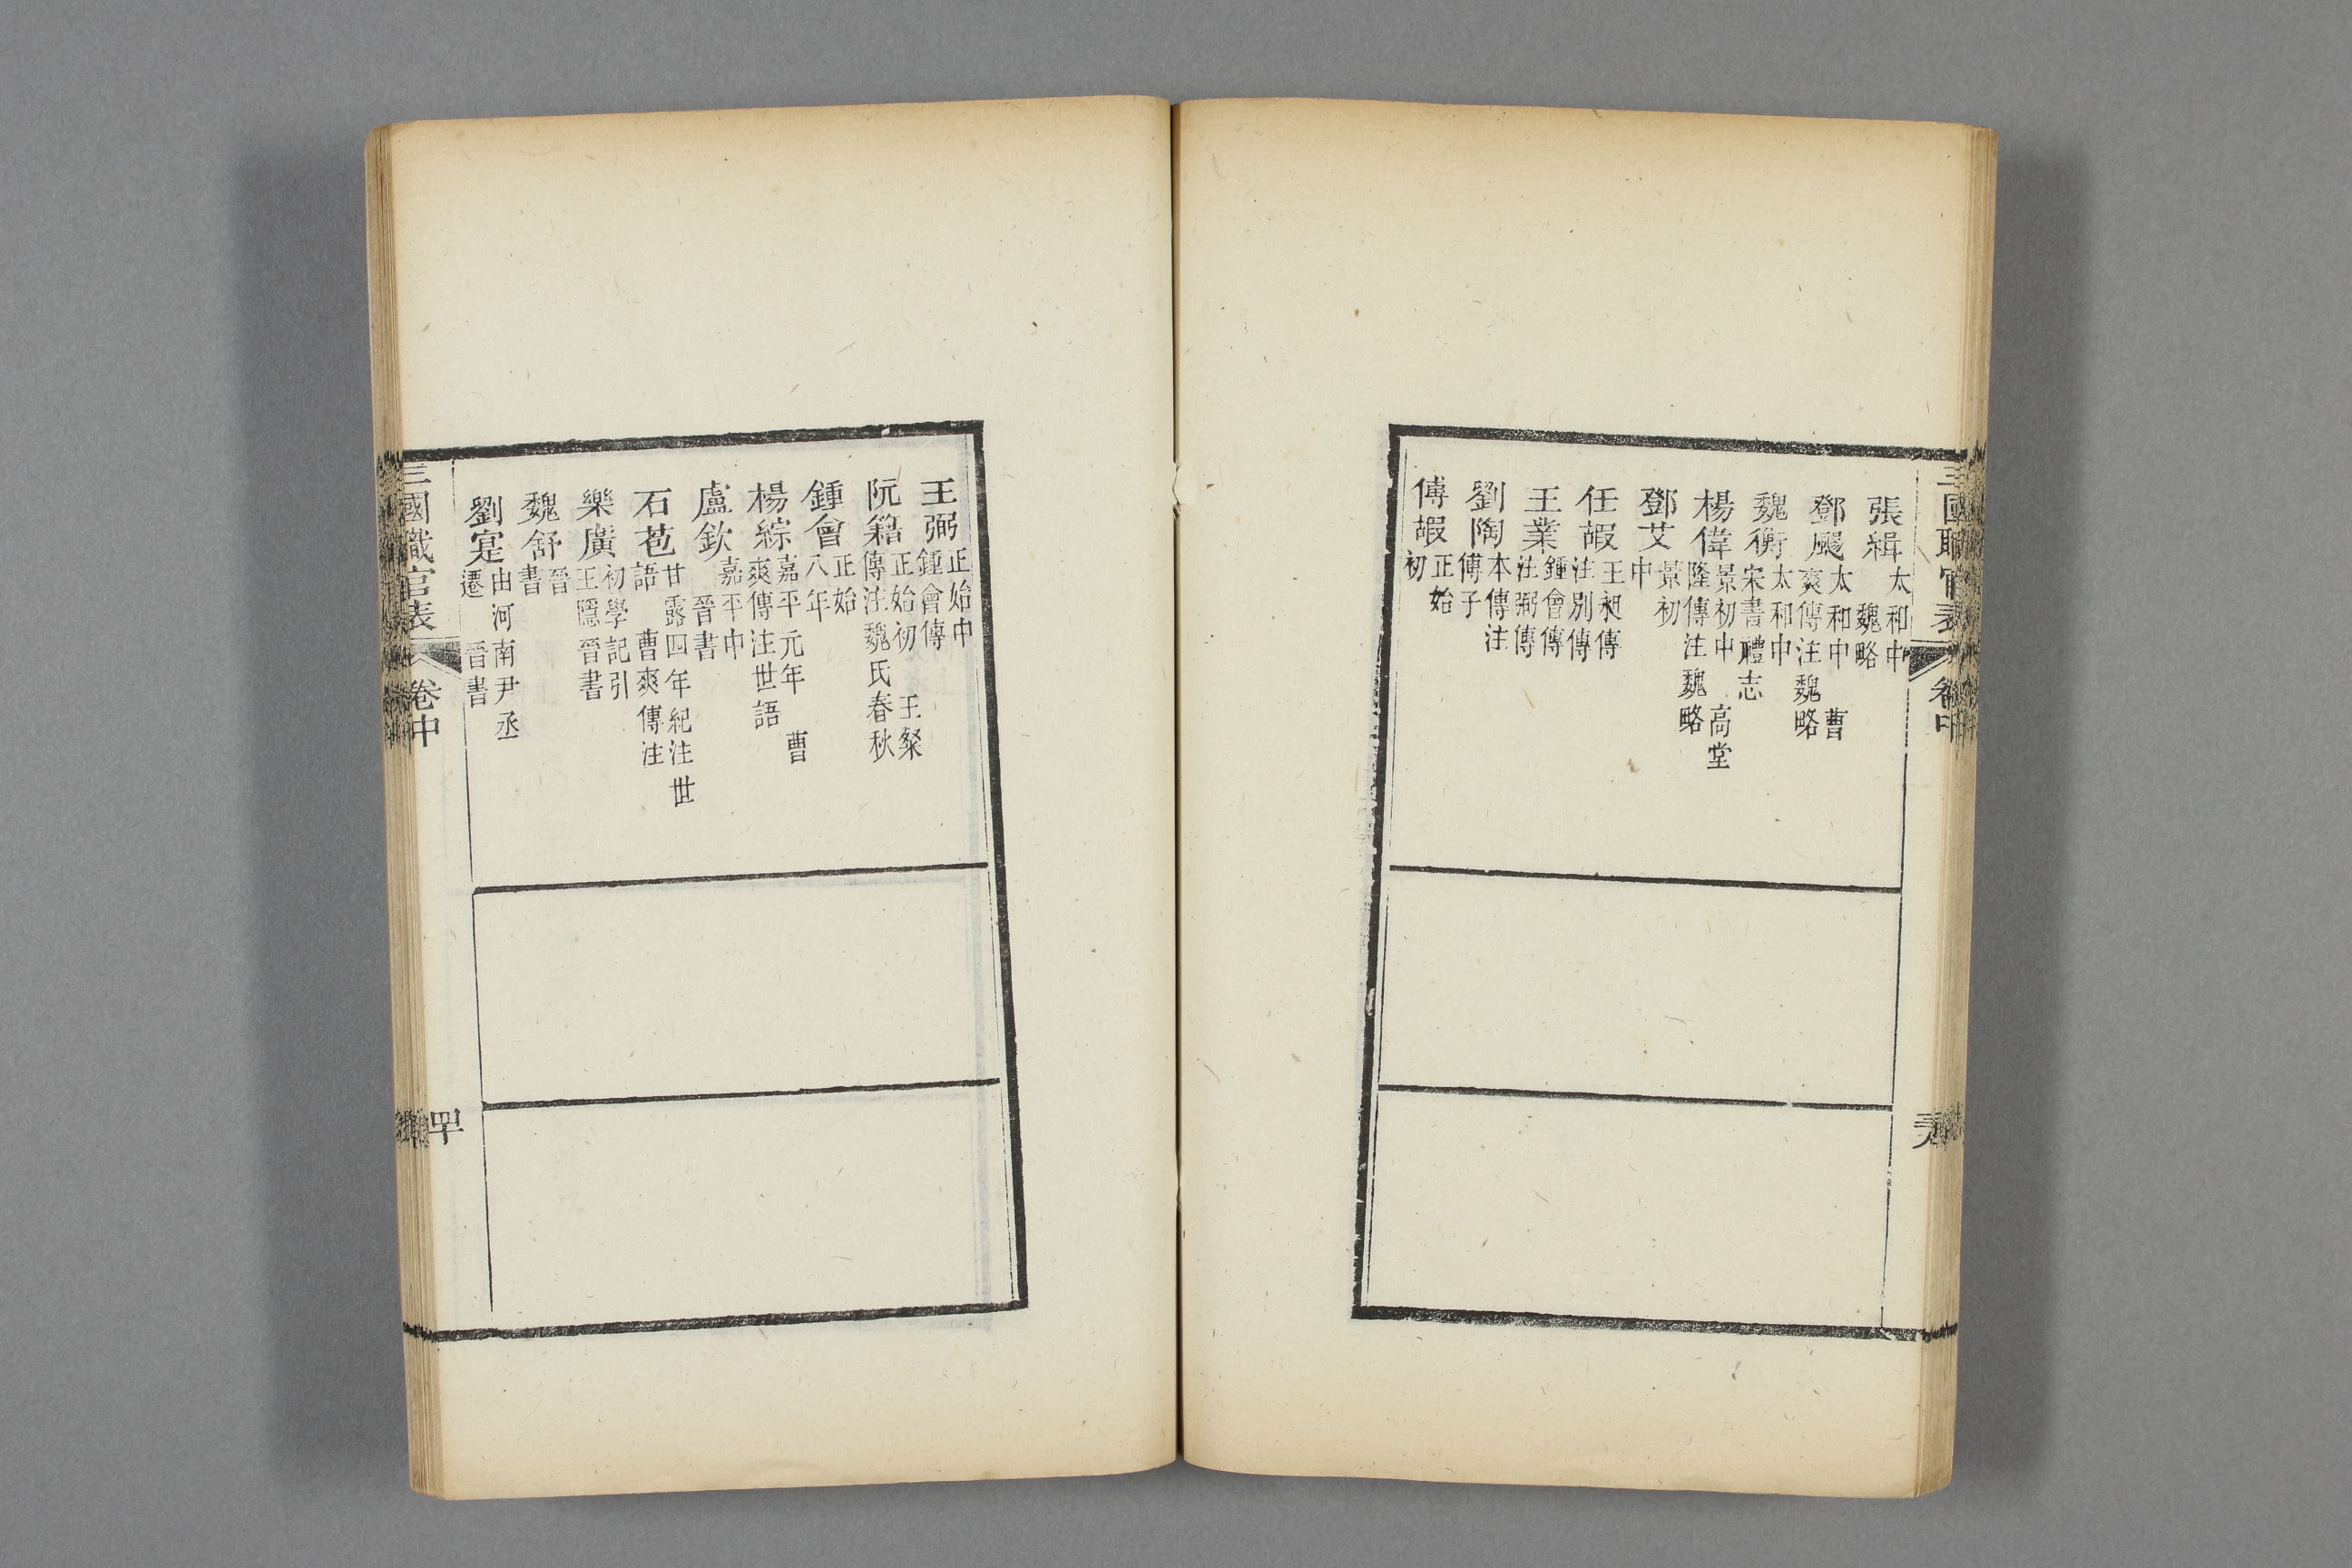 三國職官表 卷中
張緝太和中魏略
鄧颺太和中 曹爽傳注魏略
魏衡太和中宋書禮志
楊偉景初中 高堂隆傳注魏略
鄧艾景初中
任嘏王昶傳注別傳
王業鍾會傳注弼傳
劉陶本傳注傅子
傅嘏正始初
王弼正始中鍾會傳
阮籍正始初 王粲傳注魏氏春秋
鍾會正始八年
楊綜嘉平元年 曹爽傳注世語
盧欽嘉平中 晉書
石苞甘露四年紀注世語 曹爽傳注
樂廣初學記引王隱晉書
魏舒晉書
劉寔由河南尹丞遷 晉書
三國職官表 卷中 罕